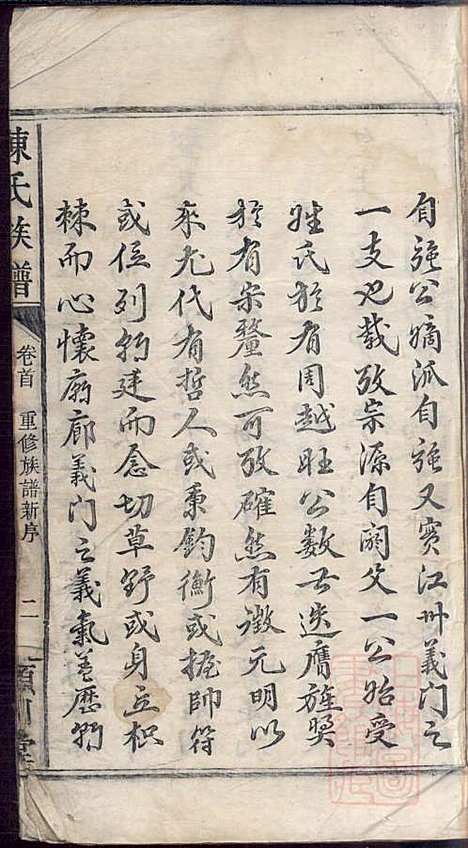 自強公嫡派自強又實江州義門之
一支也載攷宗源自閼父一公始受
姓氏於有周越旺公數世迭膺旌獎
於有宋釐然可攷確然有徵元明以
來尤代有哲人或秉鈞衡或握帥符
或位列朝廷而念切草野或身立枳
棘而心懷廟廊義門之義氣蓋歷朝
陳氏族譜
卷首 重修族譜新序
二